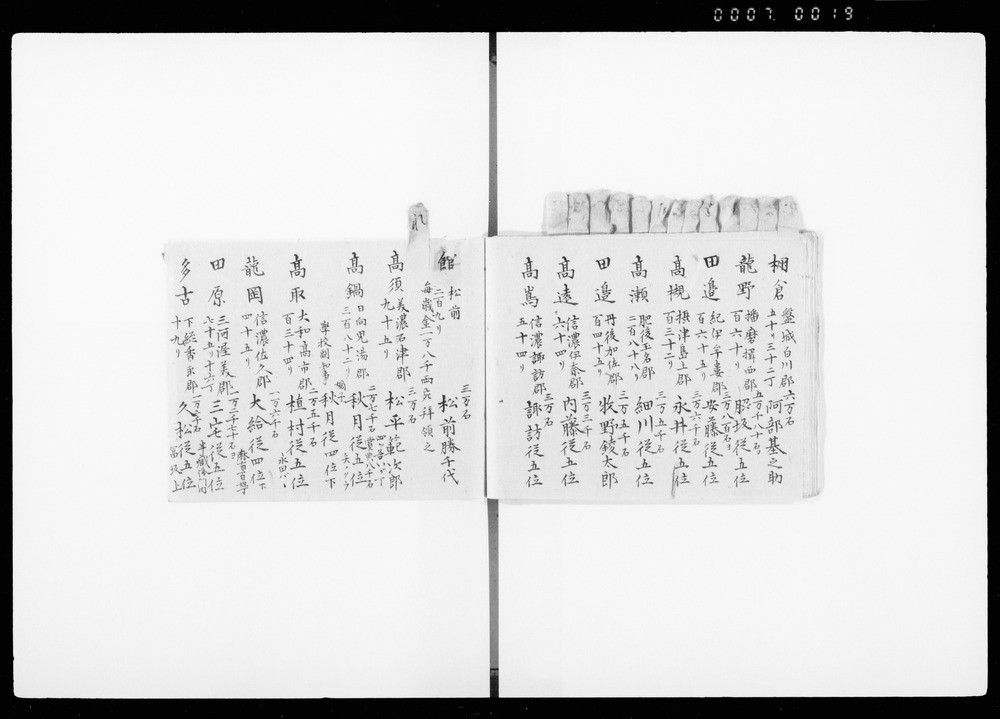 0007 0019
棚倉 磐城白川郡 六万石 阿部基之助
五十リ三十二丁
龍野 播磨揖西郡 五万千八十石 脇坂従五位
百六十リ
田邉 紀伊牟婁郡 三万八百石 安藤従五位
百六十五リ
高槻 摂津島上郡 三万六千石 永井従五位
百三十二リ
高瀬 肥後玉名郡 三万五千石 細川従五位
二百八十八リ
田邉 丹後加佐郡 三万五千石 牧野錂太郎
百四十五リ
高遠 信濃伊奈郡 三万三千石 内藤従五位
六十四リ
高嶌 信濃諏訪郡 三万石 諏訪従五位
五十四リ
れ
館 松前 三万石 松前勝千代
二百九リ
毎歳金一万八千両ツヽ拝領之
高須 美濃石津郡 三万石 松平範次郎
九十五リ
高鍋 日向児湯郡 二万七千石 秋月従五位
三百八十二リ
學校副知事 嫡子 秋月従四位下
高取 大和高市郡 二万五千石 植村従五位
百三十四リ
龍岡 信濃佐久郡 一万六千石 大給従四位下
四十五リ
田原 三河渥美郡 一万二千七十石ヨ 三宅従五位
七十五リ十六丁
多古 下総香取郡 一万二千石 久松従五位
十九リ